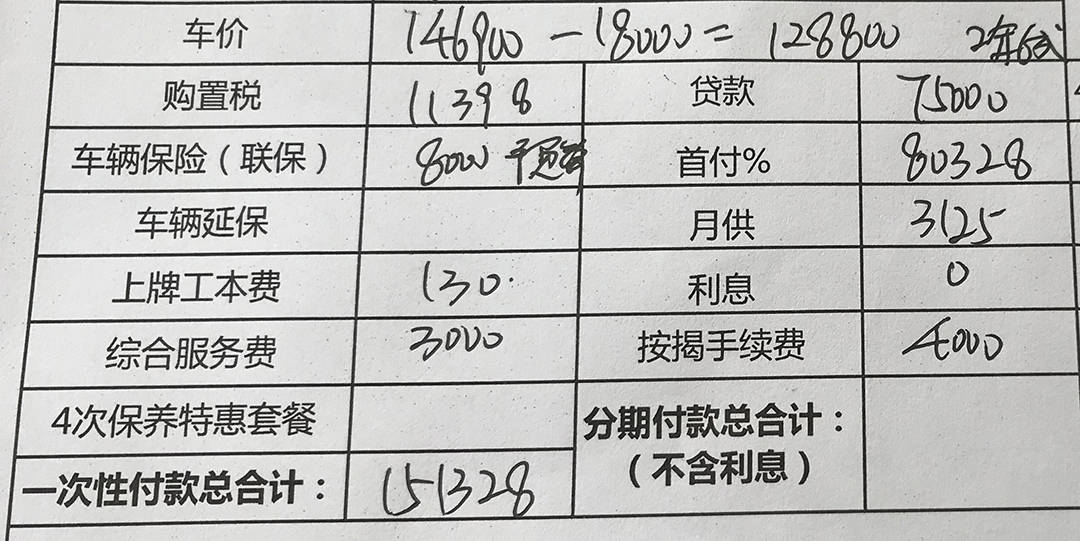 车价 146900 - 18000 = 128800 2年6次
购置税 11398 贷款 75000
车辆保险（联保） 8000 首付% 80328
车辆延保 月供 3125
上牌工本费 130 利息 0
综合服务费 3000 按揭手续费 4000
4次保养特惠套餐 分期付款总合计：
（不含利息）
一次性付款总合计： 151328